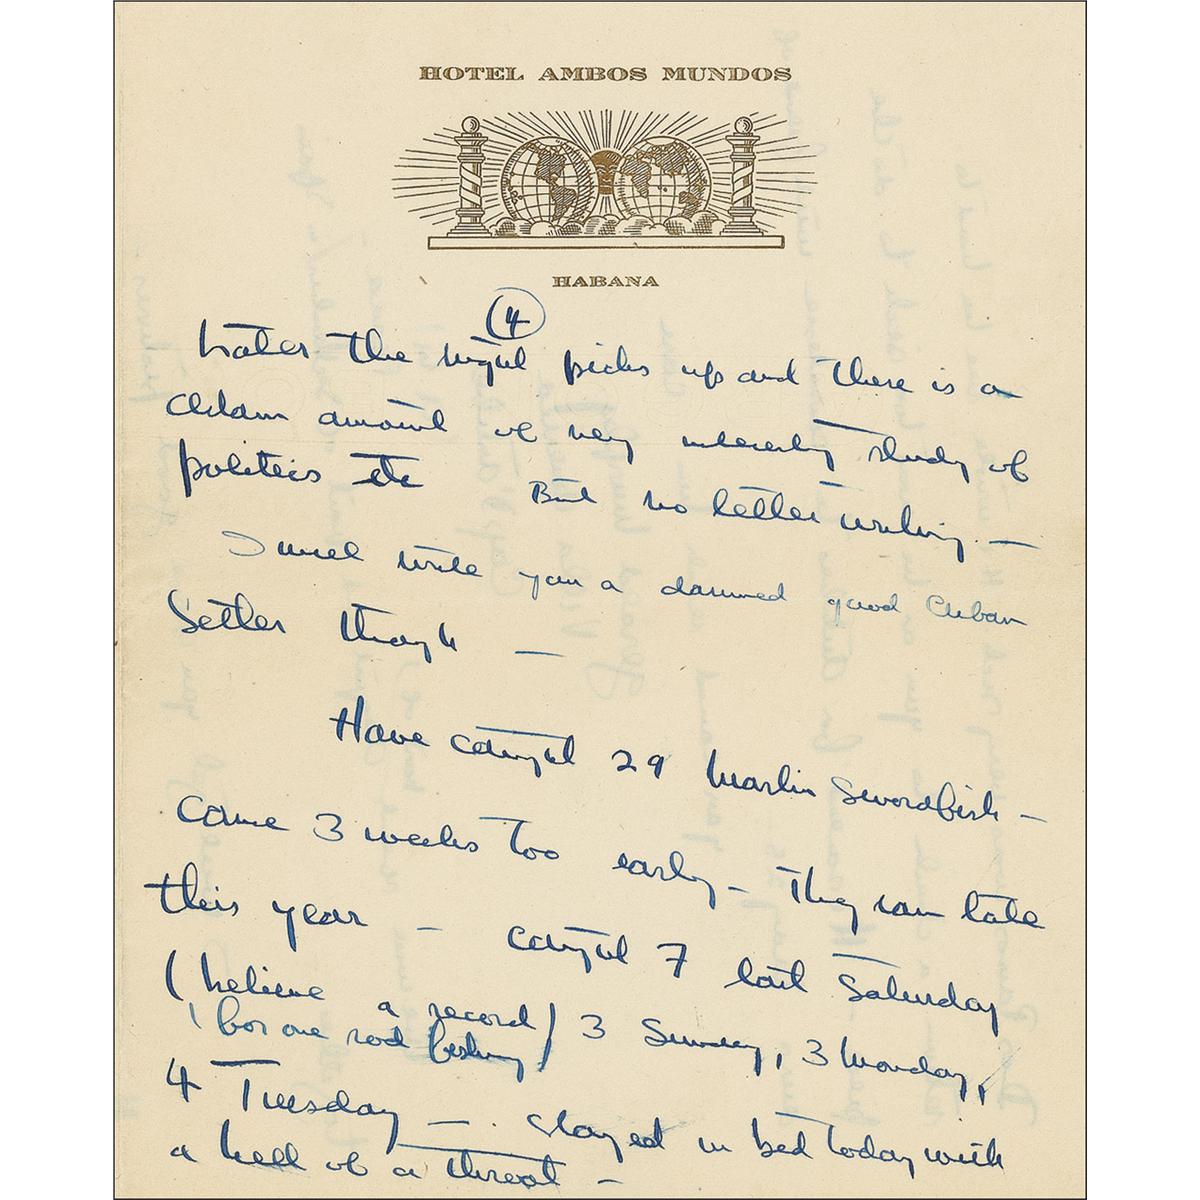 HOTEL AMBOS MUNDOS
HABANA
(4)
Later the night picks up and there is a
certain amount of very interesting study of
politics etc But no letter writing —
I will write you a damned good Cuban
Letter though —
Have caught 29 Marlin Swordfish —
came 3 weeks too early — They ran late
this year — caught 7 last Saturday
(believe a record) 3 Sunday, 3 Monday,
(for one rod fishing)
4 Tuesday — stayed in bed today with
a hell of a throat —